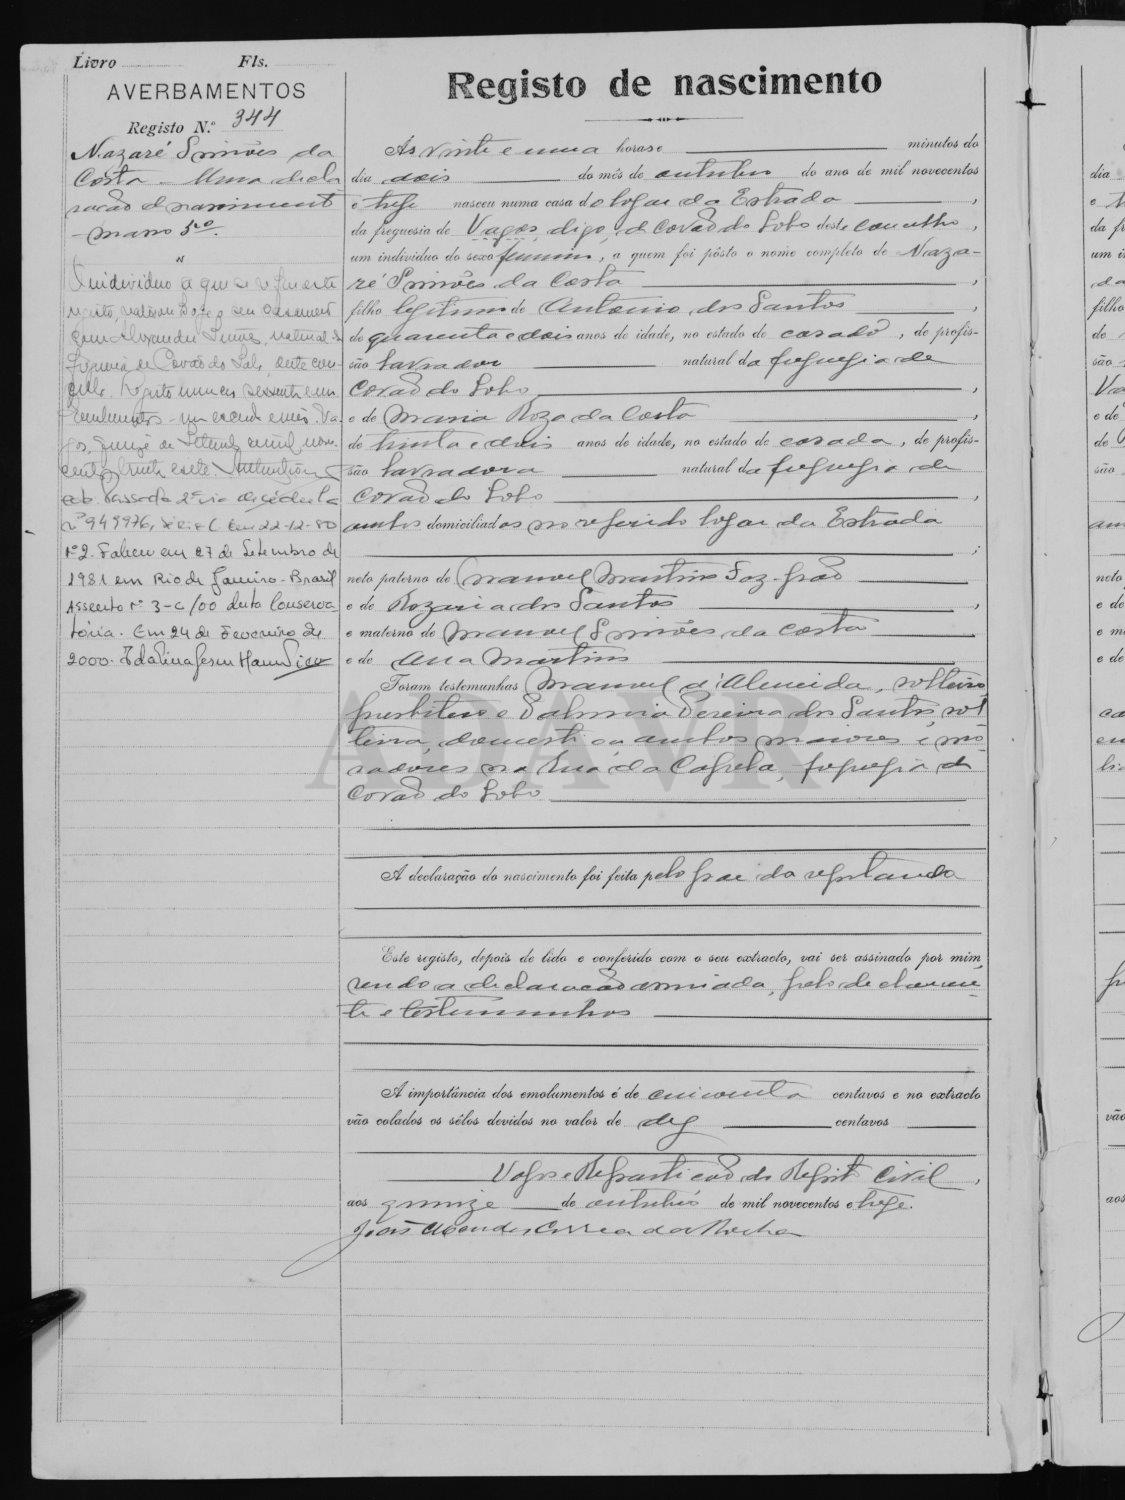 Livro Fls.
AVERBAMENTOS
Registo N.º 344
Nazaré Simões da
Costa - Uma decla
ração de nasciment
maço 5.º
O individuo a que se refere este
registo, realizou hoje o seu casamento
com Alexandre Simões, natural da
freguesia de Covão do Lobo, deste con-
celho. Registo numero sessenta e um
Emolumentos - um escudo Va-
gos, quinze de Setembro de mil nove-
centos trinta e sete
Passada 2ª via de cédula
nº 949976, série C em 22-12-80
Nº 2. Faleceu em 27 de Setembro de
1981 em Rio de Janeiro - Brasil
Assento nº 3-C/00 desta Conserva-
tória. Em 24 de Fevereiro de
2000.
Registo de nascimento
Ás vinte e uma horas e minutos do
dia dois do mês de outubro do ano de mil novecentos
e treze nasceu numa casa do logar da Estrada ,
da freguesia de Vagos, digo, de Covão do Lobo deste concelho,
um individuo do sexo feminino, a quem foi pôsto o nome completo de Naza-
ré Simões da Costa ,
filho legitimo de Antonio dos Santos ,
de quarenta e dois anos de idade, no estado de casado, de profis-
são lavrador natural da freguesia de
Covão do Lobo ,
e de Maria Roza da Costa ,
de trinta e dois anos de idade, no estado de casada, de profis-
são lavradora natural da freguesia de
Covão do Lobo ,
ambos domiciliados no referido logar da Estrada
;
neto paterno de Manuel Martins
e de Rozaria dos Santos ,
e materno de Manuel Simões da Costa
e de Ana Martins
Foram testemunhas Manuel d'Almeida, solteiro,
presbitero e Palmira Pereira dos Santos, sol
teira, domestica ambos maiores e mo-
radores na Rua da Capela, freguesia de
Covão do Lobo
ADAVR
A declaração do nascimento foi feita pelo pae da registanda
Este registo, depois de lido e conferido com o seu extracto, vai ser assinado por mim,
sendo a declaração assinada, pelo declaran-
te e testemunhas
A importância dos emolumentos é de cincoenta centavos e no extracto
vão colados os sêlos devidos no valor de dez centavos
Vagos e Repartição do Registo Civil ,
aos quinze de outubro de mil novecentos e treze.
João Mendes Correa da Rocha